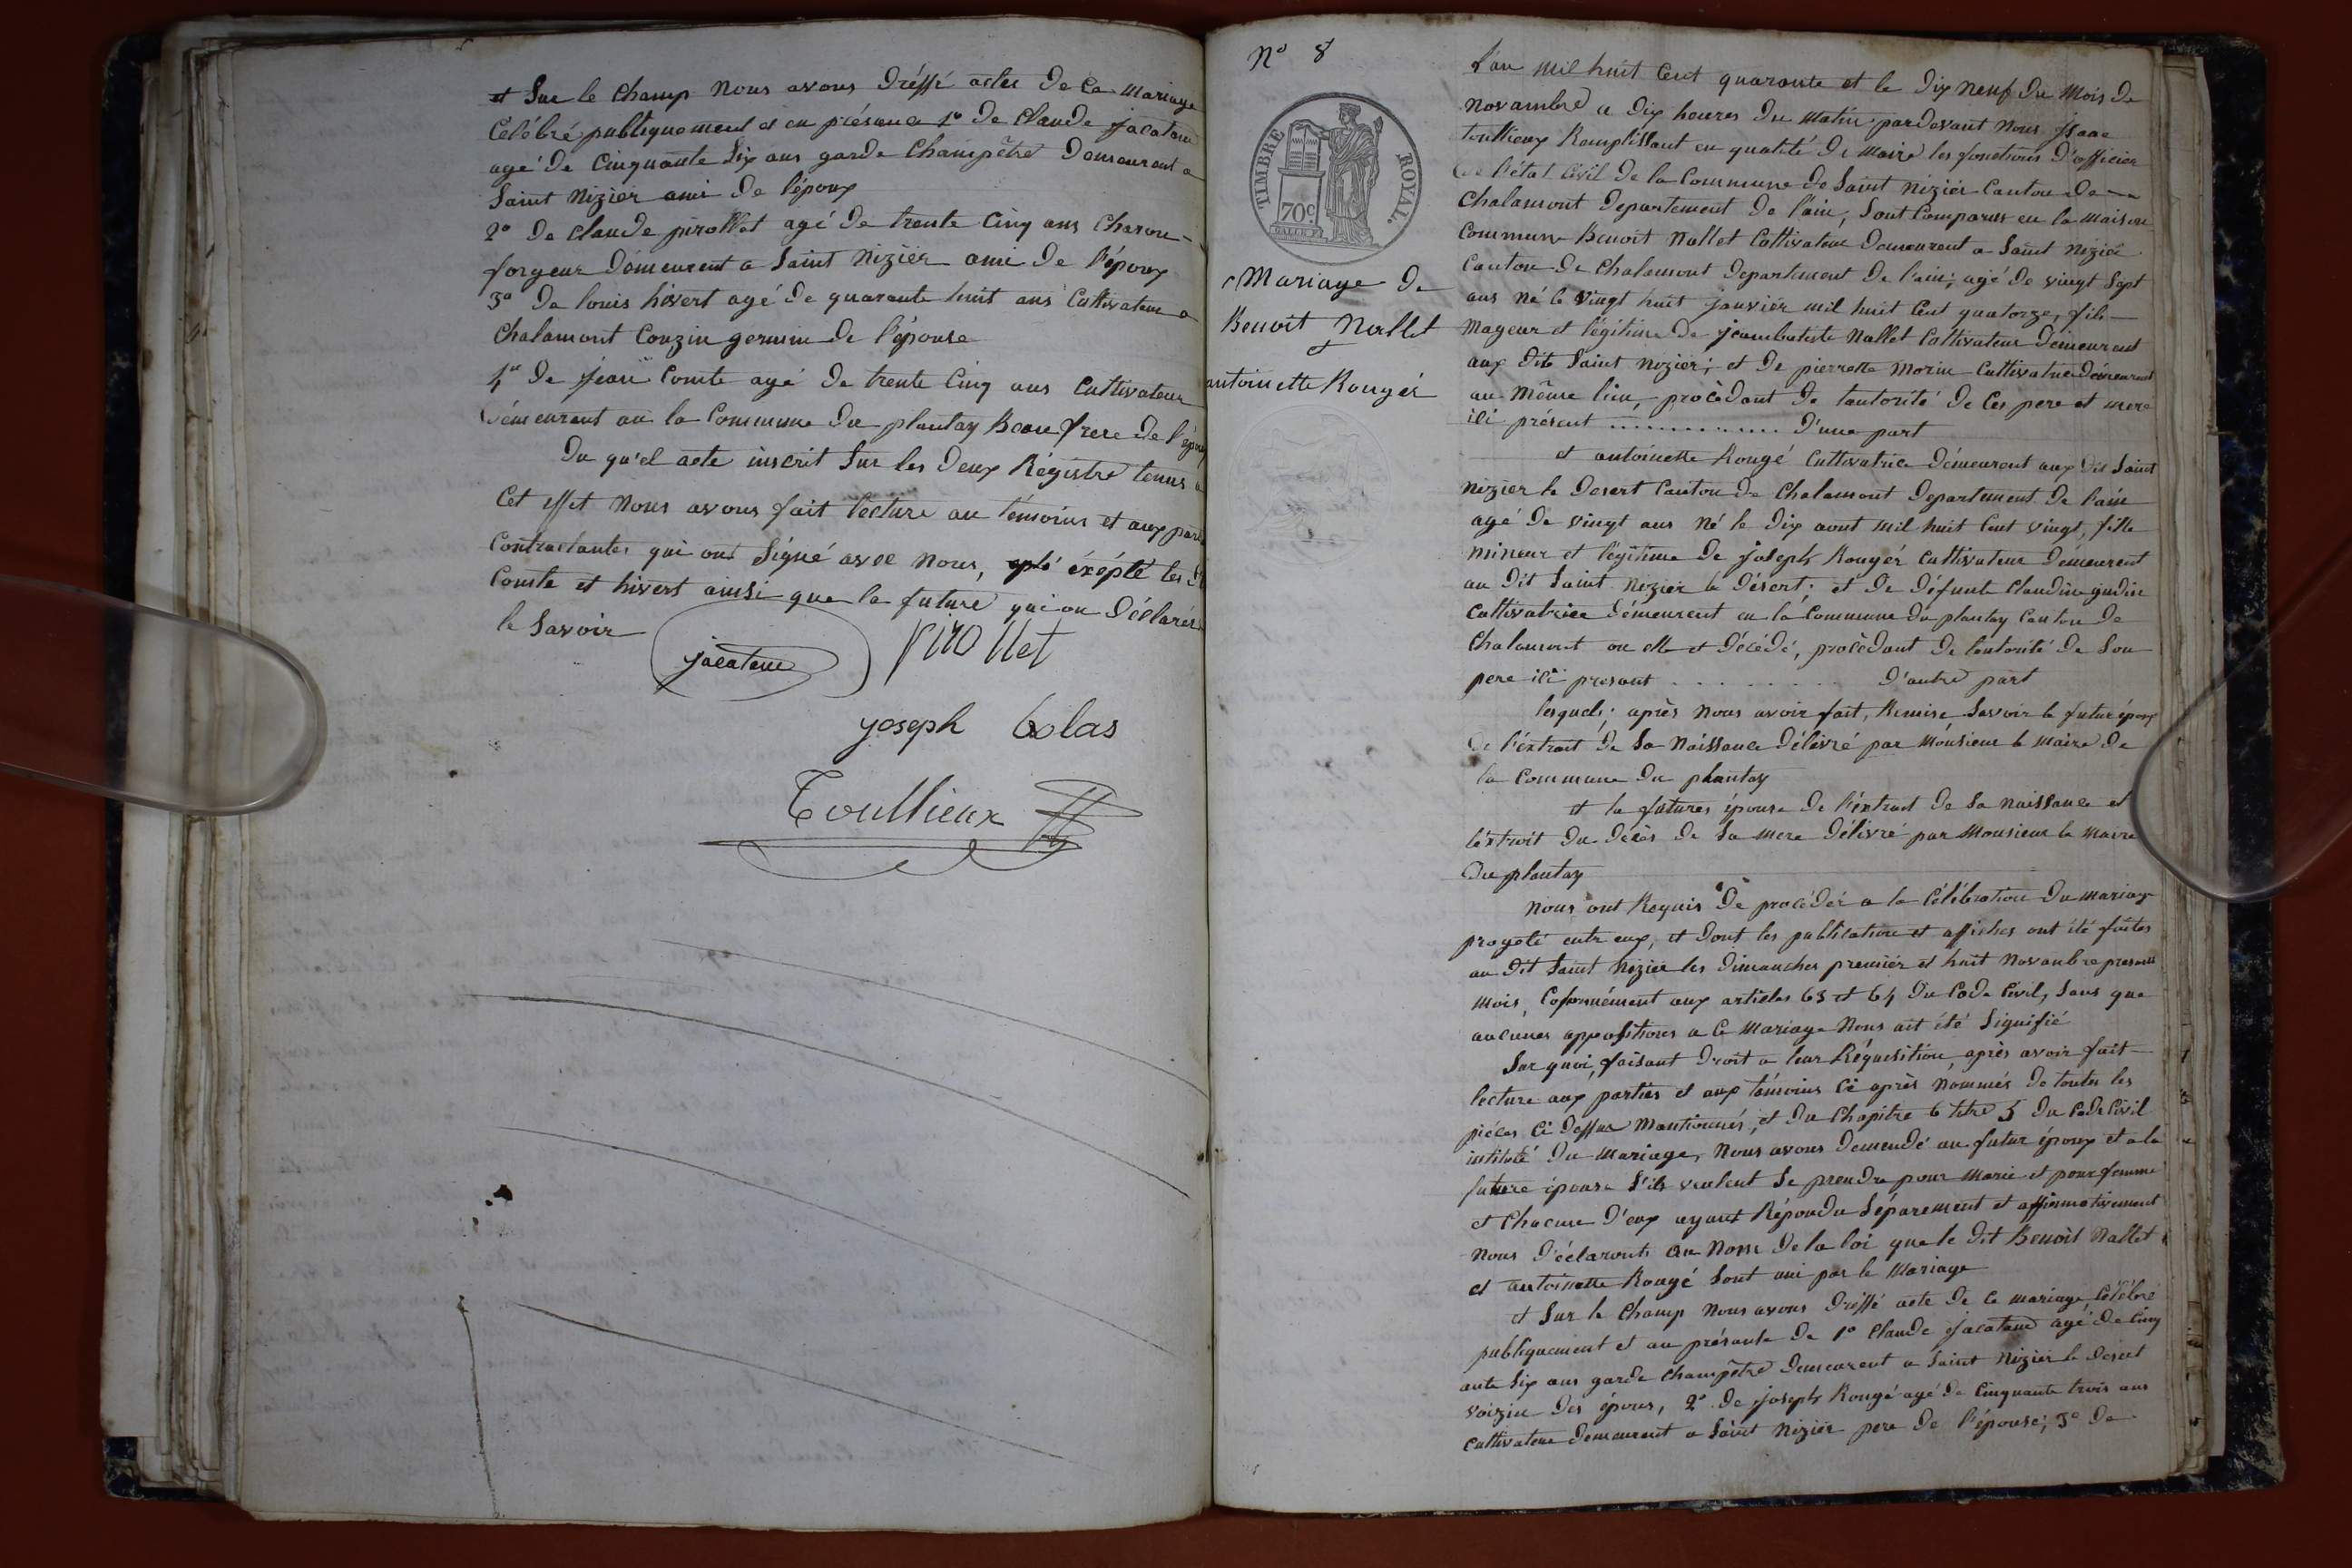 et Sur le Champ Nous avons dréssé acter de Ce Mariage
Célébré publiquement et en présence 1° de Claude jacatou
agé de Cinquante Six ans garde Champêtre demeurant a
Saint Nizier ami de l'époux
2° de Claude pirollet agé de trente Cinq ans Charon-
forgeur démeurent a Saint Nizier ami de l'époux
3° de louis hivert agé de quarante huit ans Cultivateur a
Chalamont Couzin germin de l'épouse
4° de jean Comte agé de trente Cinq ans Cultivateur
démeurant au la Commune du plantay Beau frere de l'époux
Du qu'el acte inscrit Sur les deux Régistre tenus a
Cet effet Nous avons fait lecture au témoins et aux parti
Contractantes qui ont Signé avec Nous, exépté les
Comte et hivert ainsi que la future qui on déclarés
le Savoir
jacatou
Pirollet
joseph Colas
Toullieux
N° 8
TIMBRE ROYAL
70c.
Mariage de
Benoit Nallet
antoinette Rougér
L'an Mil huit Cent quarante et le dix Neuf du Mois de
Novambre a dix heures du Matin pardevant Nous Isaac
toullieux Remplissant en qualité de Maire les fonctions d'officier
de l'état Civil de la Commune de Saint Nizier Canton de
Chalamont departement de l'ain, Sont Comparus en la Maison
Commune Benoit Nallet Cultivateur demeurant a Saint Nizier
Canton de Chalamont departement de l'ain; agé de vingt Sept
ans né le vingt huit janvier mil huit Cent quatorze, fils
Mageur et légitime de jeanbatiste Nallet Cultivateur demeurent
aux dite Saint Nizier; et de pierrette Morin Cultivatrice démeurant
au Même lieu, procèdant de l'autorité de Ces pere et mere
ici présent ............. d'une part
et antoinette Rougé Cultivatrice démeurant aux dit Saint
Nizier le desert Canton de Chalamont departement de l'ain
agé de vingt ans né le dix aout mil huit Cent vingt, fille
Mineur et légitime de joseph Rougér Cultivateur démeurent
au dit Saint Nizier le désert; et de défunte Claudine gudin
Cultivatrice démeurent en la Commune du plantay Canton de
Chalamont ou elle et décédé, procèdant de l'autorité de Son
pere ici presant . . . . . . . . d'autre part
lesquels; après Nous avoir fait, Remise Savoir le futur époux
de l'éxtrait de Sa Naissance délivré par Monsieur le Maire de
la Commune du plantay
et la futures épouse de l'éxtrait de Sa Naissance et
l'éxtrait du décès de Sa Mere délivré par Monsieur le Maire
du plantay
Nous ont Requis de procédér a la Célébration du Mariage
progeté entr eux, et dont les publication et affiches ont été faites
au dit Saint Nizier les dimanches premiér et huit Novanbre presant
Mois, Coformément aux articles 63 et 64 du Code Civil, Sans que
aucunes oppositions a Ce Mariage Nous ait été Signifié
Sur quoi, faisant droit a leur Réquisition, après avoir fait
lecture aux parties et aux témoins Ci après Nommés de toutes les
pièces Ci dessus Mantionnés, et du Chapitre 6 titre 5 du Code Civil
intitulé du Mariage, Nous avons demendé au futur époux et a la
future épouse S'ils veulent Se prendre pour Marie et pour femme
et Chacune d'eux ayant Répondu Séparement et affirmativement
Nous déclaronts au Nom de la loi que le dit Benoit Nallet
et antoinette Rougé Sont uni par le Mariage
et Sur le Champ Nous avons dréssé acte de Ce Mariage Célébré
publiquement et au présante de 1° Claude jacatou agé de Cinq
ante Six ans garde Champêtre demeurent a Saint Nizier le desert
voizin des épous, 2° de joseph Rougé agé de Cinquante trois ans
Cultivateur demeurent a Saint Nizier pere de l'épouse; 3° de